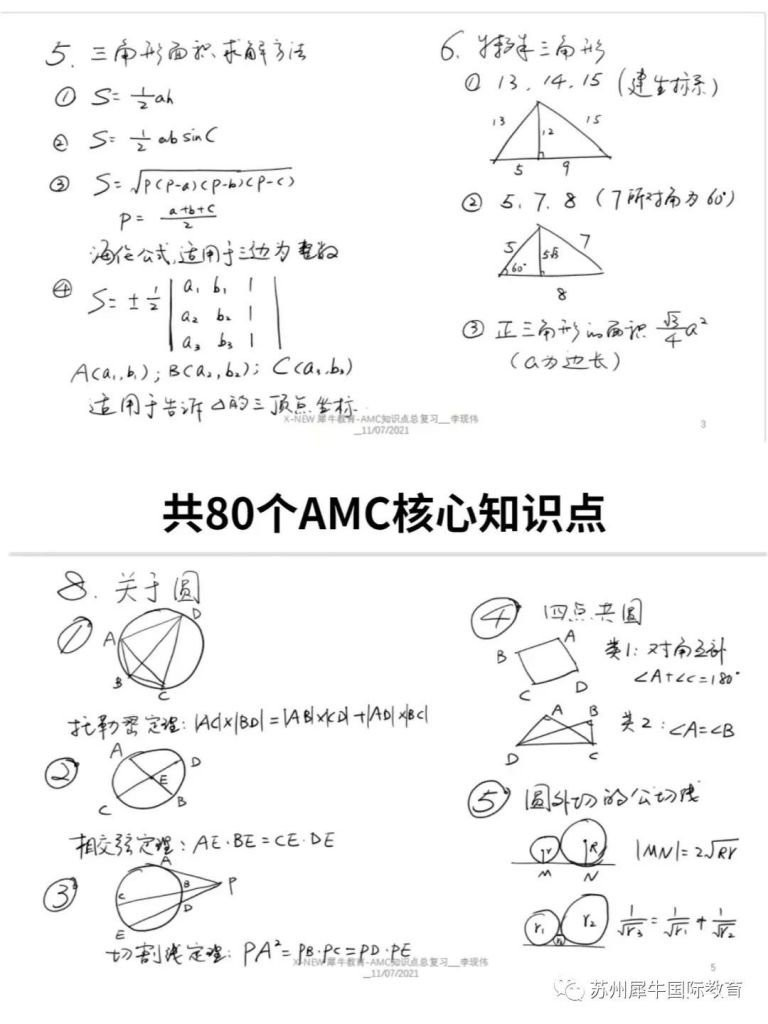 5. 三角形面积求解方法
① S= 1/2 ah
② S= 1/2 ab sinC
③ S=√P(P-a)(P-b)(P-c)
P= a+b+c/2
海伦公式,适用于三边为整数
④ S= ± 1/2 | a₁ b₁ 1 |
| a₂ b₂ 1 |
| a₃ b₃ 1 |
A(a₁,b₁); B(a₂,b₂); C(a₃,b₃)
适用于告诉△的三顶点坐标.
6. 特殊三角形
① 13, 14, 15 (建坐标系)
13 12 15
5 9
② 5, 7, 8 (7所对角为60°)
5 5√3 7
60°
8
③ 正三角形的面积 √3/4 a²
(a为边长)
X-NEW 犀牛教育-AMC知识点总复习__李现伟
__11/07/2021
3
共80个AMC核心知识点
8. 关于圆
①
A D
B C
托勒密定理: |AC|×|BD|=|AB|×|CD|+|AD|×|BC|
②
A D
E
C B
相交弦定理: AE·BE=CE·DE
③
A
C B P
D
E
切割线定理: PA²=PB·PC=PD·PE
④ 四点共圆
B A
C D
类1: 对角互补
∠A+∠C=180°
A B
D C
类2: ∠A=∠B
⑤ 圆外切的公切线
r R
M N
|MN|=2√Rr
r₁ r₂
1/√r₃ = 1/√r₁ + 1/√r₂
X-NEW 犀牛教育-AMC知识点总复习__李现伟
__11/07/2021
5
苏州犀牛国际教育